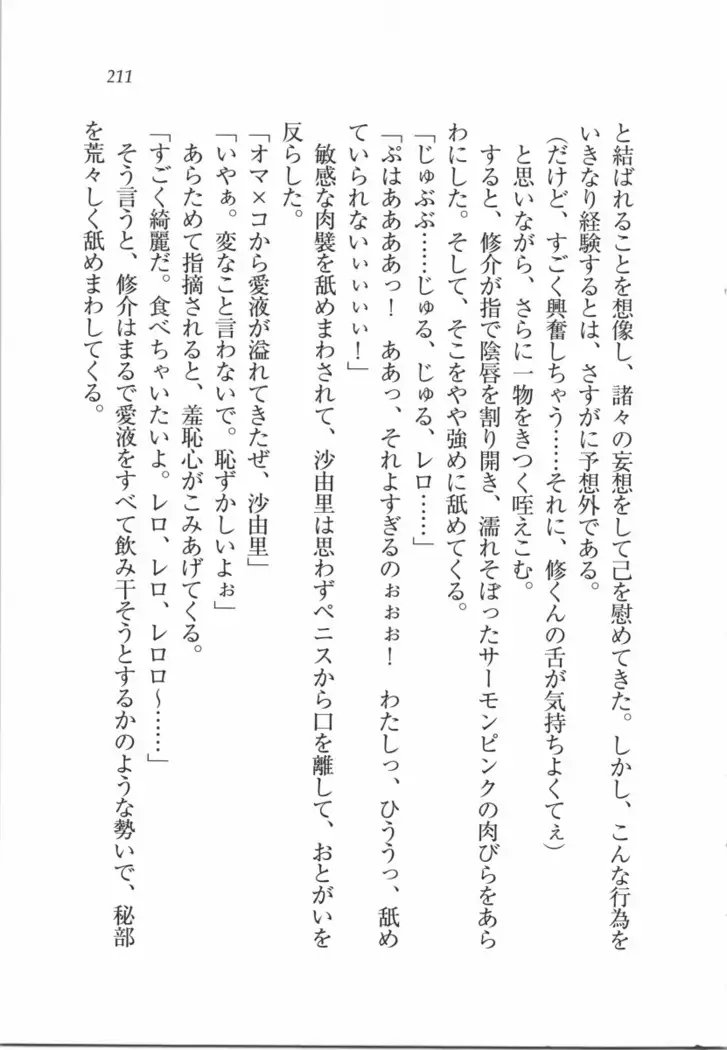 211
と結ばれることを想像し、諸々の妄想をして己を慰めてきた。しかし、こんな行為を
いきなり経験するとは、さすがに予想外である。
(だけど、すごく興奮しちゃう……それに、修くんの舌が気持ちよくてぇ)
と思いながら、さらに一物をきつく咥えこむ。
すると、修介が指で陰唇を割り開き、濡れそぼったサーモンピンクの肉びらをあら
わにした。そして、そこをやや強めに舐めてくる。
「じゅぶぶ……じゅる、じゅる、レロ……」
「ぷはああああっ! ああっ、それよすぎるのぉぉぉ! わたしっ、ひううっ、舐め
ていられないぃぃぃぃ!」
敏感な肉襞を舐めまわされて、沙由里は思わずペニスから口を離して、おとがいを
反らした。
「オマ×コから愛液が溢れてきたぜ、沙由里」
「いやぁ。変なこと言わないで。恥ずかしいよぉ」
あらためて指摘されると、羞恥心がこみあげてくる。
「すごく綺麗だ。食べちゃいたいよ。レロ、レロ、レロロ〜……」
そう言うと、修介はまるで愛液をすべて飲み干そうとするかのような勢いで、秘部
を荒々しく舐めまわしてくる。